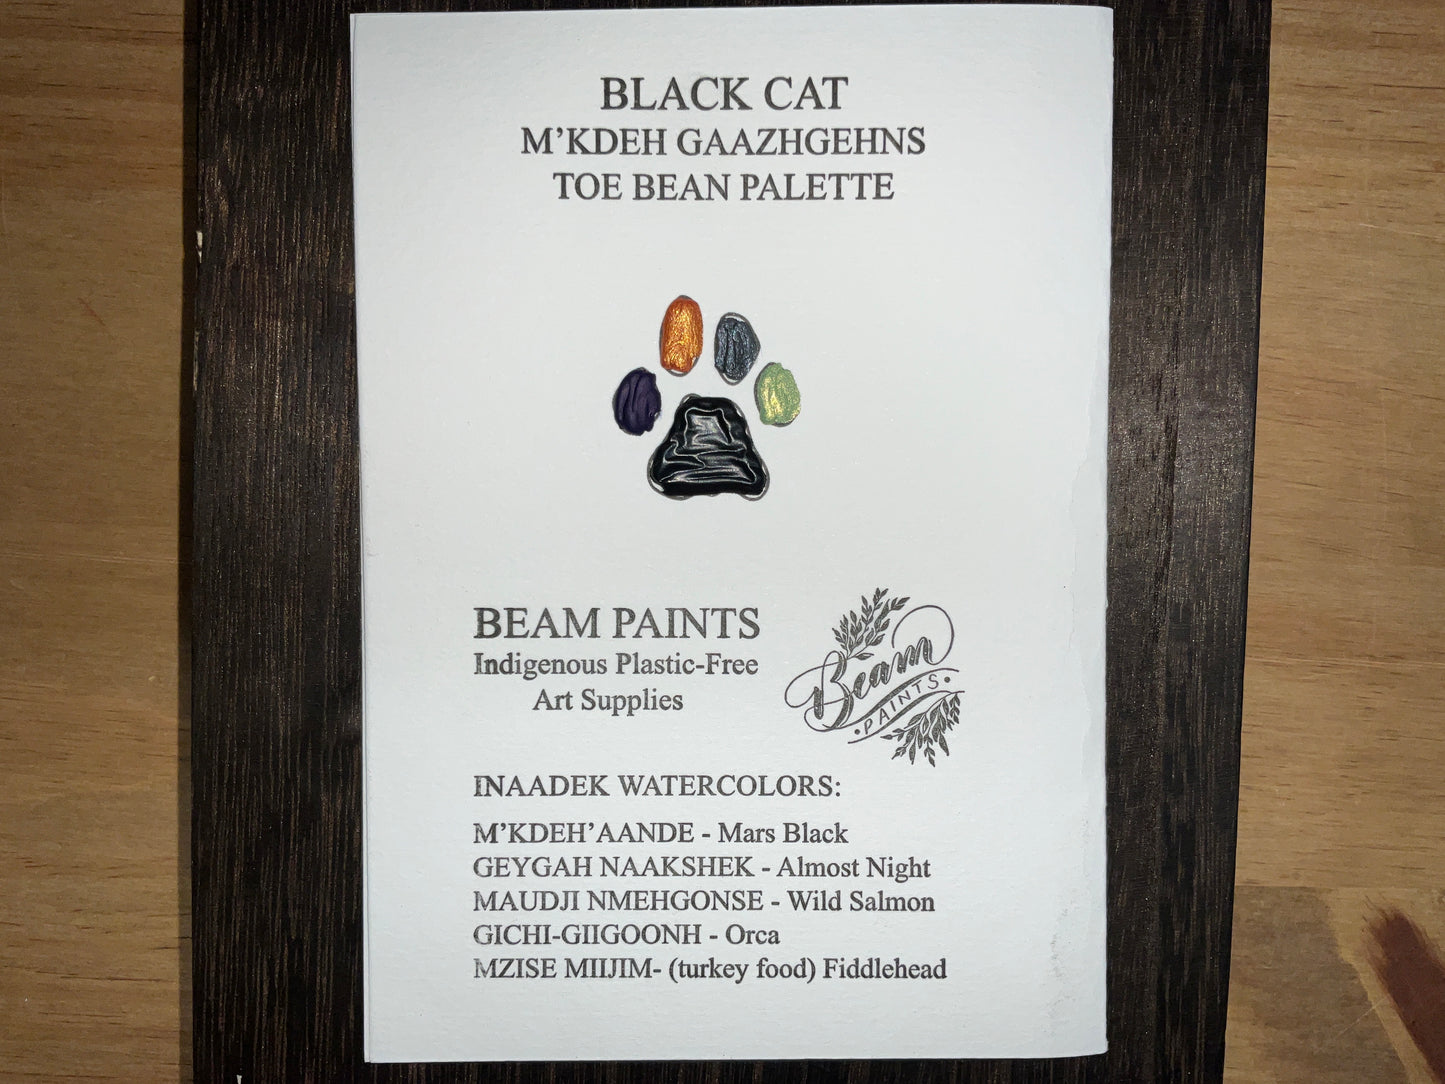 BLACK CAT
M’KDEH GAAZHGEHNS
TOE BEAN PALETTE
BEAM PAINTS
Indigenous Plastic-Free
Art Supplies
Beam
•PAINTS•
INAADEK WATERCOLORS:
M’KDEH’AANDE - Mars Black
GEYGAH NAAKSHEK - Almost Night
MAUDJI NMEHGONSE - Wild Salmon
GICHI-GIIGOONH - Orca
MZISE MIIJIM- (turkey food) Fiddlehead